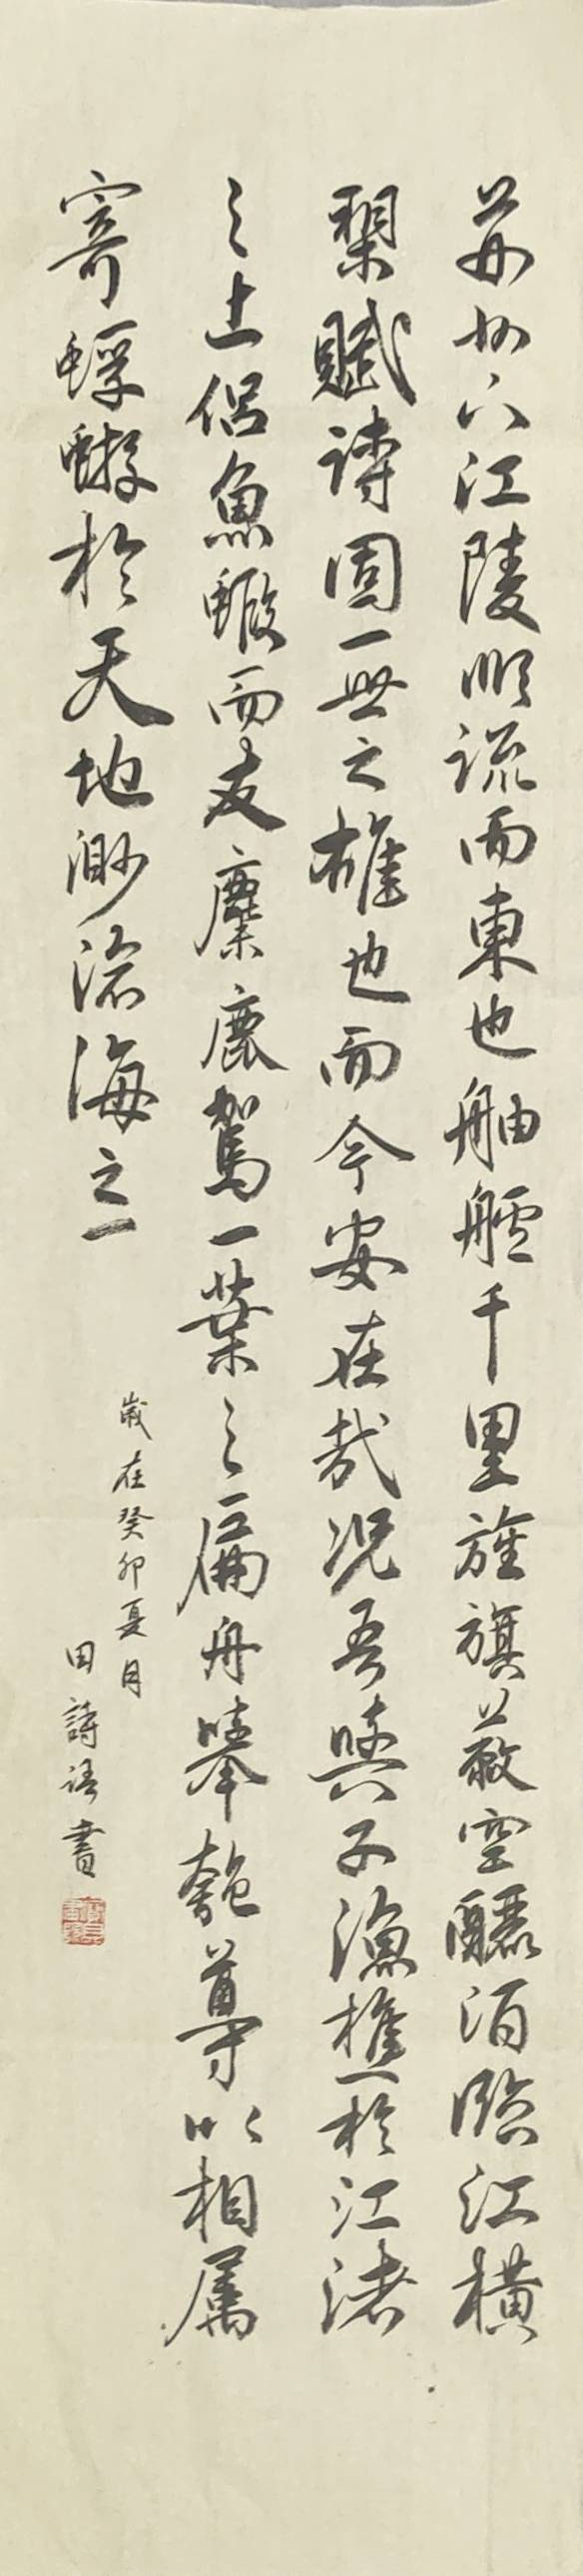 荊州下江陵順流而東也舳艫千里旌旗蔽空釃酒臨江橫
槊賦詩固一世之雄也而今安在哉況吾與子漁樵於江渚
之上侶魚蝦而友麋鹿駕一葉之扁舟舉匏尊以相屬
寄蜉蝣於天地渺滄海之一
歲在癸卯夏月
田詩語書